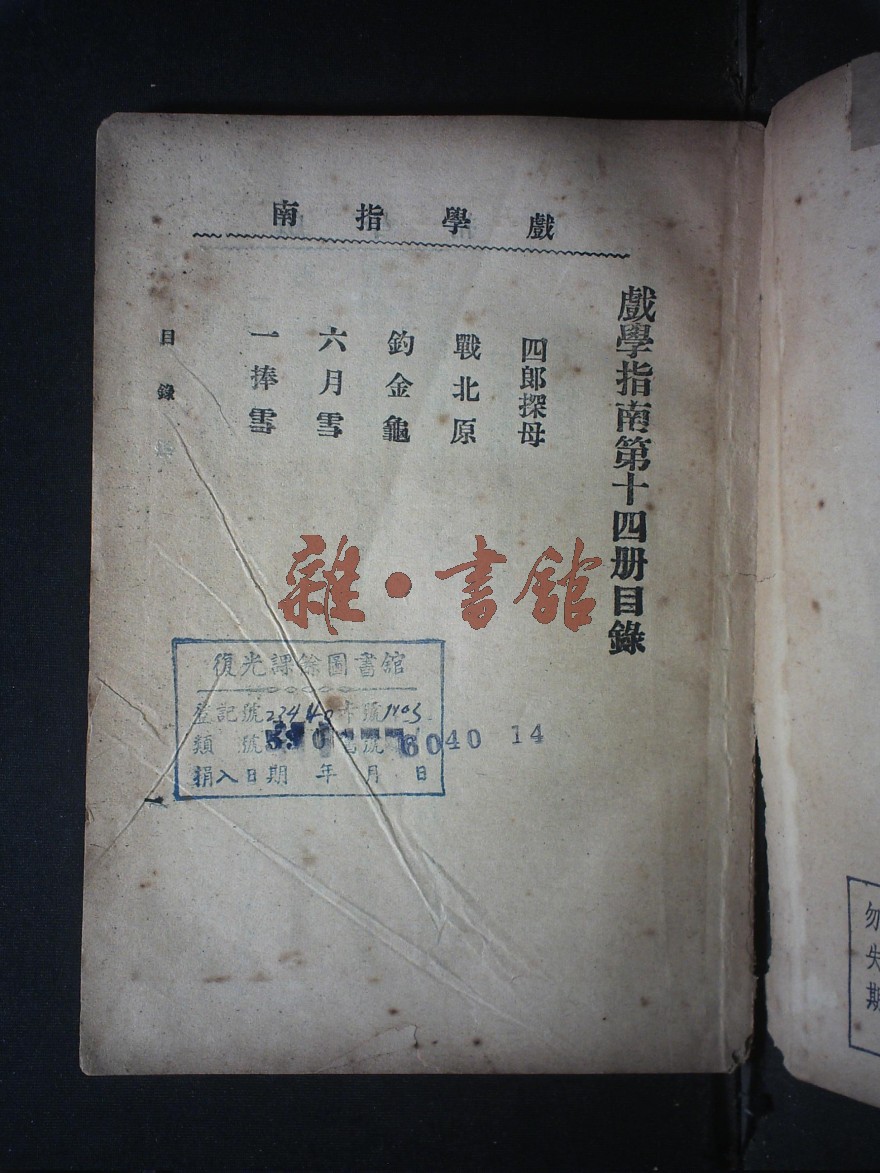 戲學指南
戲學指南第十四册目錄
四郎探母
戰北原
釣金龜
六月雪
一捧雪
目錄
一
雜·書館
復光課餘圖書館
登記號 書號
類號 6040 14
捐入日期 年 月 日
勿失期